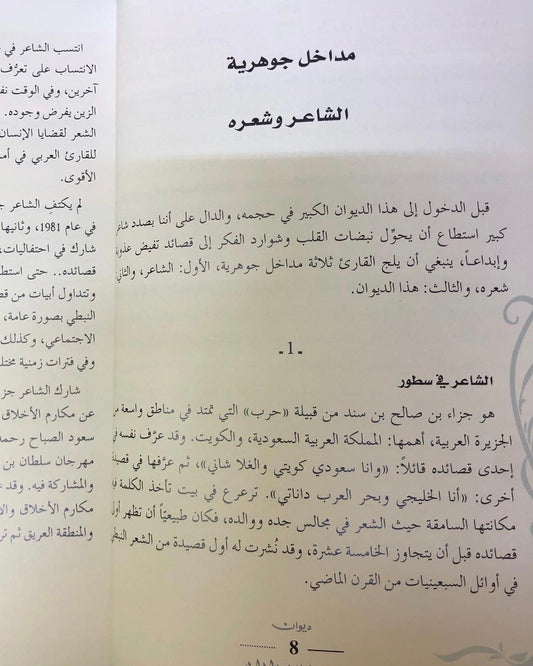 مداخل جوهرية
الشاعر وشعره
قبل الدخول إلى هذا الديوان الكبير في حجمه، والدال على أننا بصدد شاعر
كبير استطاع أن يحوِّل نبضات القلب وشوارد الفكر إلى قصائد تفيض عذوبة
وإبداعاً، ينبغي أن يلج القارئ ثلاثة مداخل جوهرية، الأول: الشاعر، والثاني
شعره، والثالث: هذا الديوان.
- 1 -
الشاعر في سطور
هو جزاء بن صالح بن سند من قبيلة «حرب» التي تمتد في مناطق واسعة من
الجزيرة العربية، أهمها: المملكة العربية السعودية، والكويت. وقد عرَّف نفسه في
إحدى قصائده قائلاً: «وانا سعودي كويتي والغلا شاني»، ثم عرَّفها في قصيدة
أخرى: «أنا الخليجي وبحر العرب داناتي». ترعرع في بيت تأخذ الكلمة فيه
مكانتها السامقة حيث الشعر في مجالس جده ووالده، فكان طبيعيّاً أن تظهر أول
قصائده قبل أن يتجاوز الخامسة عشرة، وقد نُشرت له أول قصيدة من الشعر النبطي
في أوائل السبعينيات من القرن الماضي.
ديوان
8
انتسب الشاعر في
الانتساب على تعرُّف
آخرين، وفي الوقت
الزين يفرض وجوده.
الشعر لقضايا الإنسان
للقارئ العربي في
الأقوى.
لم يكتفِ الشاعر
في عام 1981، وثانيها
شارك في احتفاليات،
قصائده.. حتى
وتتداول أبيات من
النبطي بصورة عامة،
الاجتماعي، وكذلك
وفي فترات زمنية
شارك الشاعر
عن مكارم الأخلاق
سعود الصباح
مهرجان سلطان بن
والمشاركة فيه. وقد
مكارم الأخلاق
والمنطقة العريق ثم